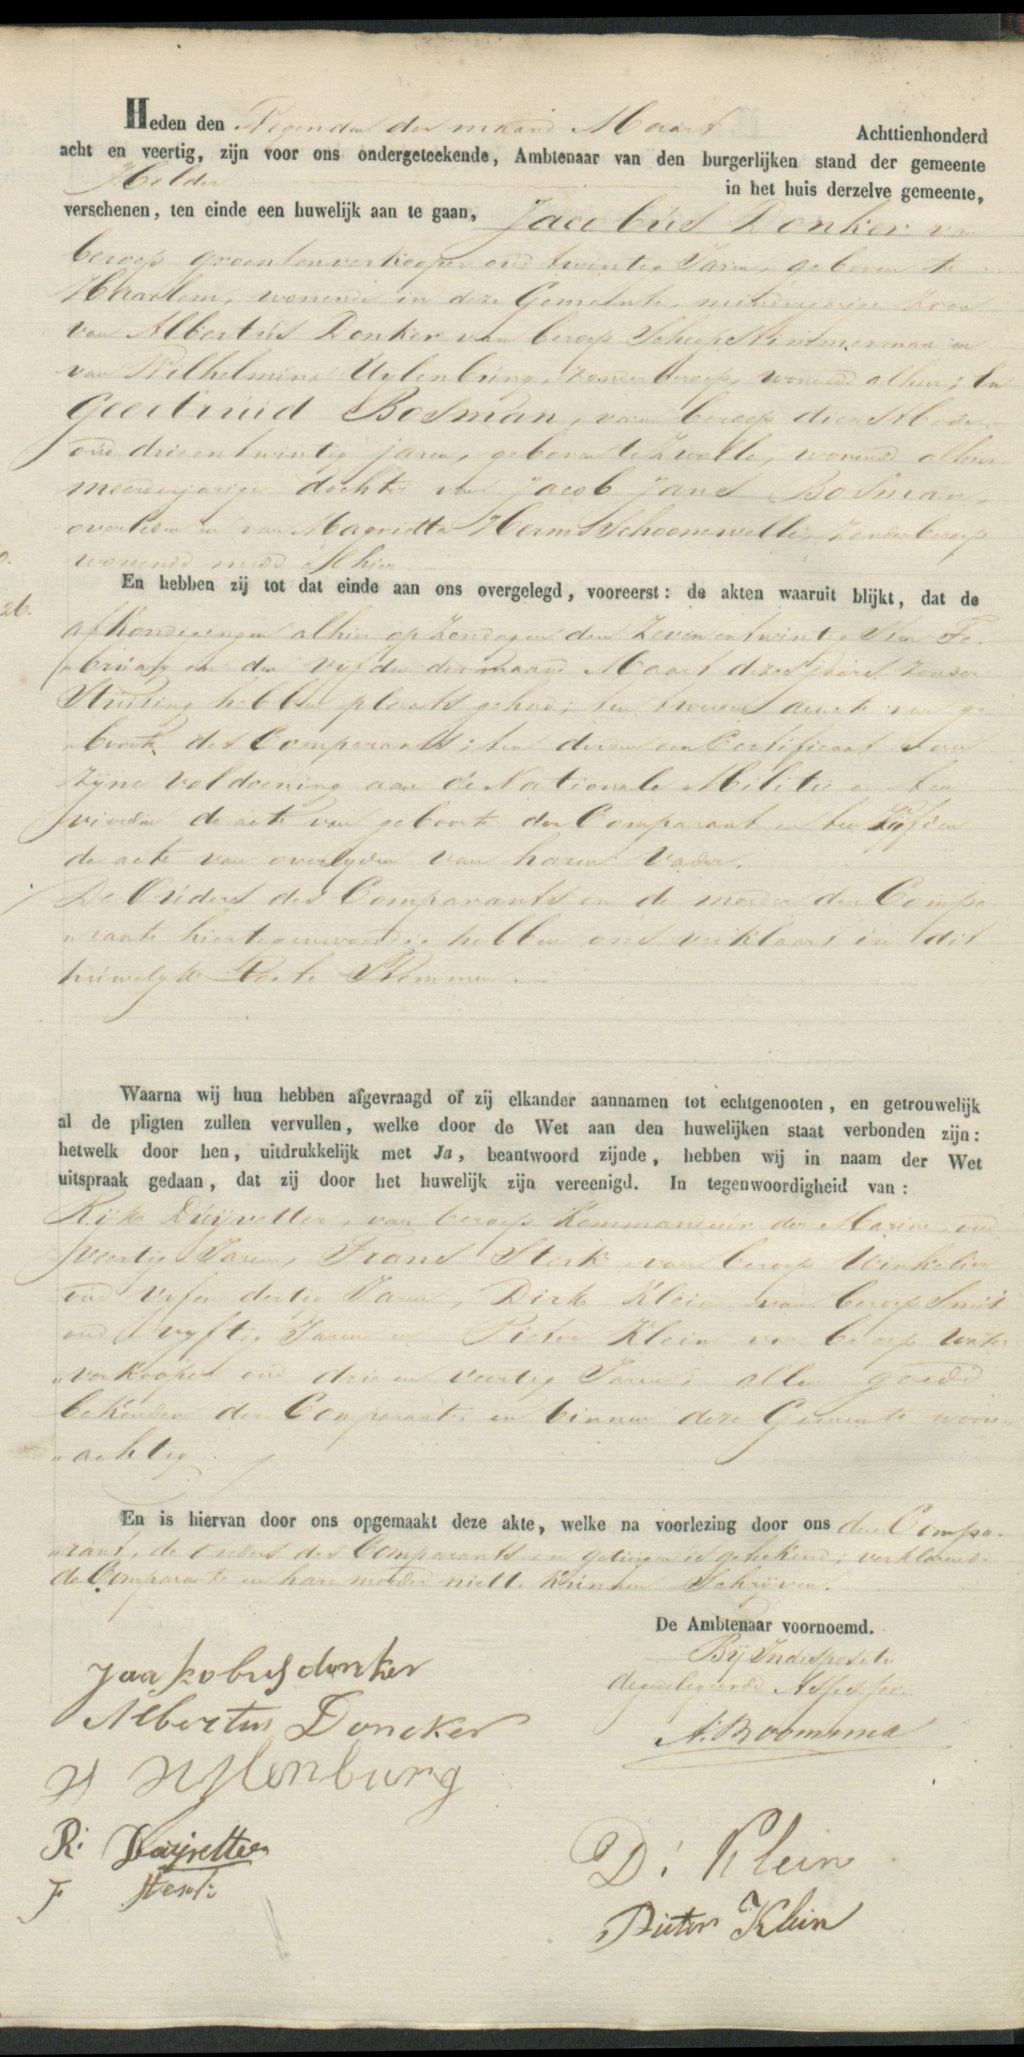 Heden den Negenden der maand Maart Achttienhonderd
acht en veertig, zijn voor ons ondergeteekende, Ambtenaar van den burgerlijken stand der gemeente
Helder in het huis derzelve gemeente,
verschenen, ten einde een huwelijk aan te gaan, Jacobus Donker van
beroep groentenverkooper oud twintig Jaren, geboren te
Haarlem, wonende in deze Gemeente, minderjarige zoon
van Albertus Donker van beroep Scheepstimmerman en
van Wilhelmina Uylenburg, zonder beroep, wonende alhier; En
Geertruid Bosman, van beroep dienstbode
oud drieentwintig jaren, geboren te Zwolle, wonende alhier
meerderjarige dochter van Jacob Jans Bosman,
overleden en van Magrietta Herms Schoonewelle, zonder beroep
wonende mede alhier
En hebben zij tot dat einde aan ons overgelegd, vooreerst: de akten waaruit blijkt, dat de
afkondigingen alhier op Zondagen den Zevenentwintigsten Fe-
bruary en den vyfden der maand Maart dezes Jaars zonder
Stuiting hebben plaats gehad; ten tweeden acte van ge
boorte des Comparants; ten derden een Certificaat van
zyne voldoening aan de Nationale Militie en ten
vierden de acte van geboorte der Comparant en ten Vyfden
de acte van overlyden van haren Vader.
De Ouders des Comparants en de moeder der Compa-
rante hiertegenwoordig hebben ons verklaart in dit
huwelyk Toe te Stemmen
Waarna wij hun hebben afgevraagd of zij elkander aannamen tot echtgenooten, en getrouwelijk
al de pligten zullen vervullen, welke door de Wet aan den huwelijken staat verbonden zijn:
hetwelk door hen, uitdrukkelijk met Ja, beantwoord zijnde, hebben wij in naam der Wet
uitspraak gedaan, dat zij door het huwelijk zijn vereenigd. In tegenwoordigheid van:
Rijk Duijvetter, van beroep Kommandeur der Marine oud
veertig Jaren, Frans Sterk van beroep Winkelier
oud vyfen dertig Jaren, Dirk Klein van beroep Smit
oud vyftig Jaren en Pieter Klein van beroep water
verkooper oud drie en veertig Jaren; allen goede
bekenden der Comparanten en binnen deze Gemeente woon-
achtig.
En is hiervan door ons opgemaakt deze akte, welke na voorlezing door ons den Compa-
rant, de ouders des Comparants en getuigen is geteekend; verklarende
de Comparante en hare moeder niet te Kunnen Schryven.
De Ambtenaar voornoemd.
Bij Indispositie
degedelegeerde Assessor
A. Boomsma
Jaakobus donker
Albertus Doncker
W Uylenburg
R. Duijvetter
F Sterk
D. Klein
Pieter Klein